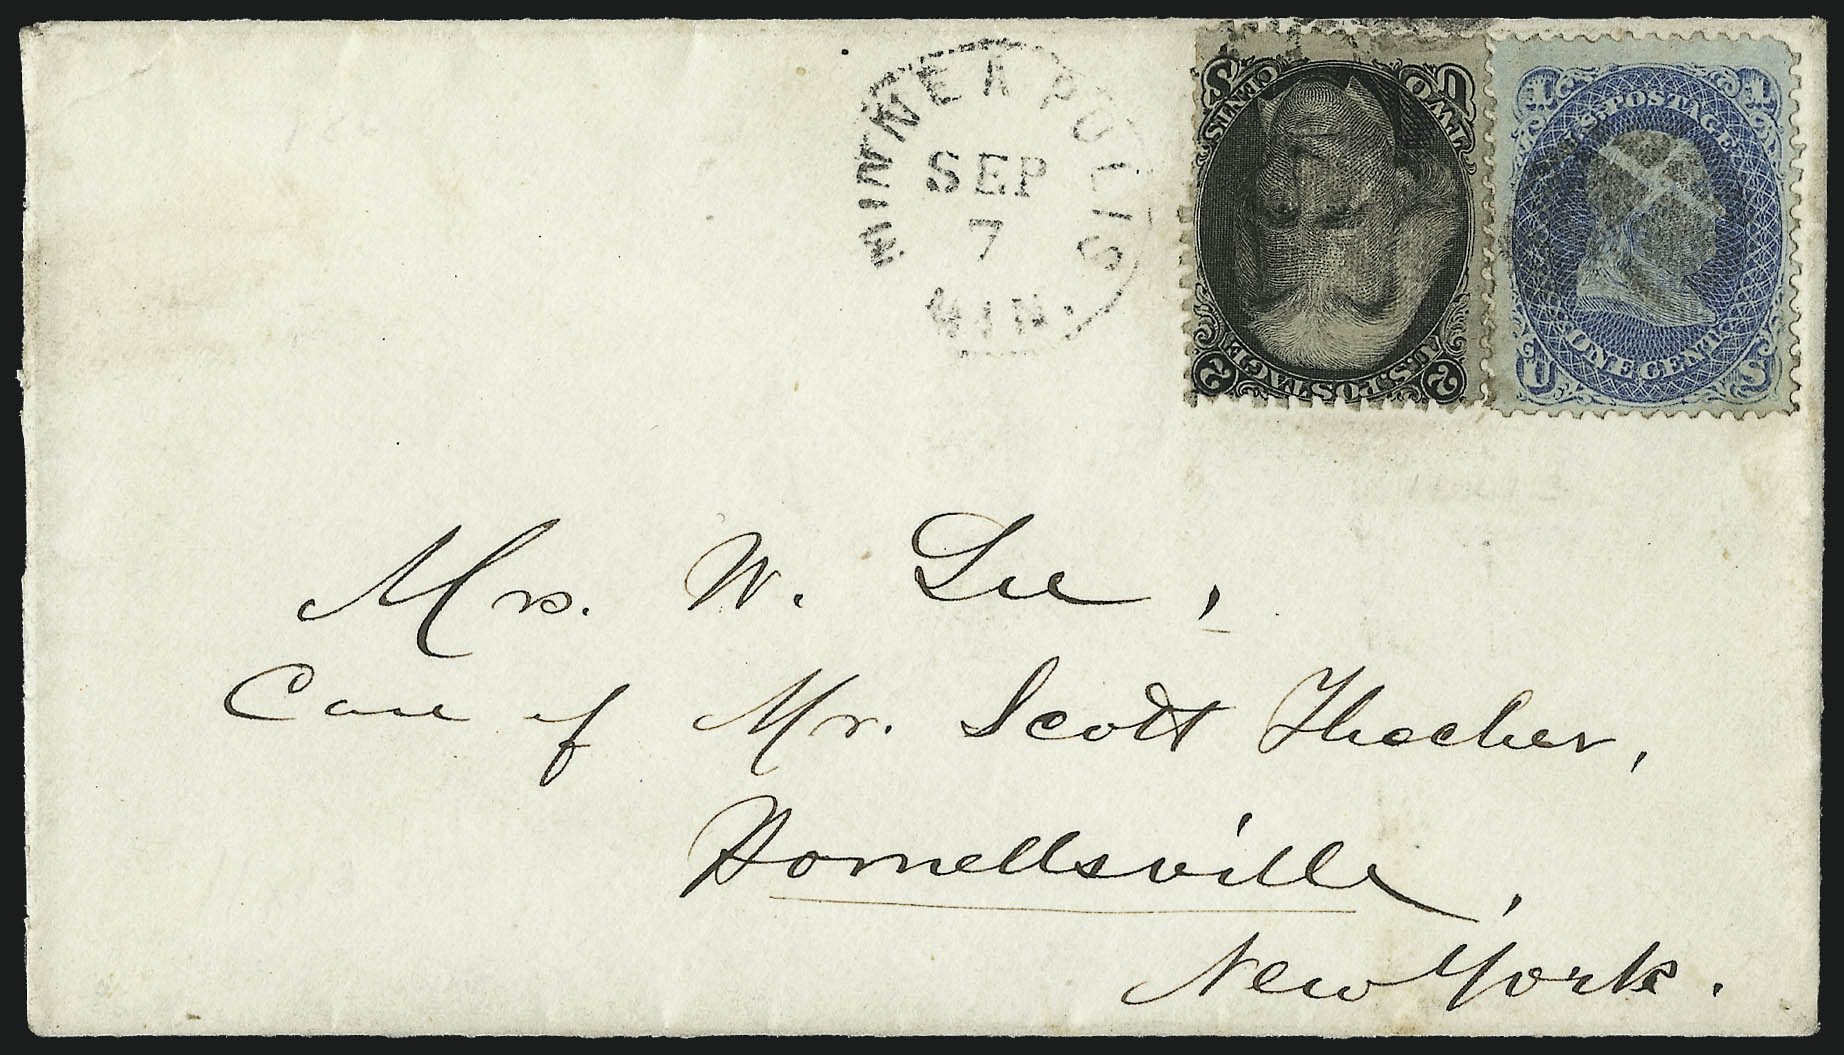 MINNEAPOLIS
SEP
7
MIN.
U S
TWO CENTS
U.S. POSTAGE
2 2
1 1
U.S. POSTAGE
ONE CENT
U S
Mrs. W. Lee,
Care of Mr. Scott Thacher,
Hornellsville,
New York.